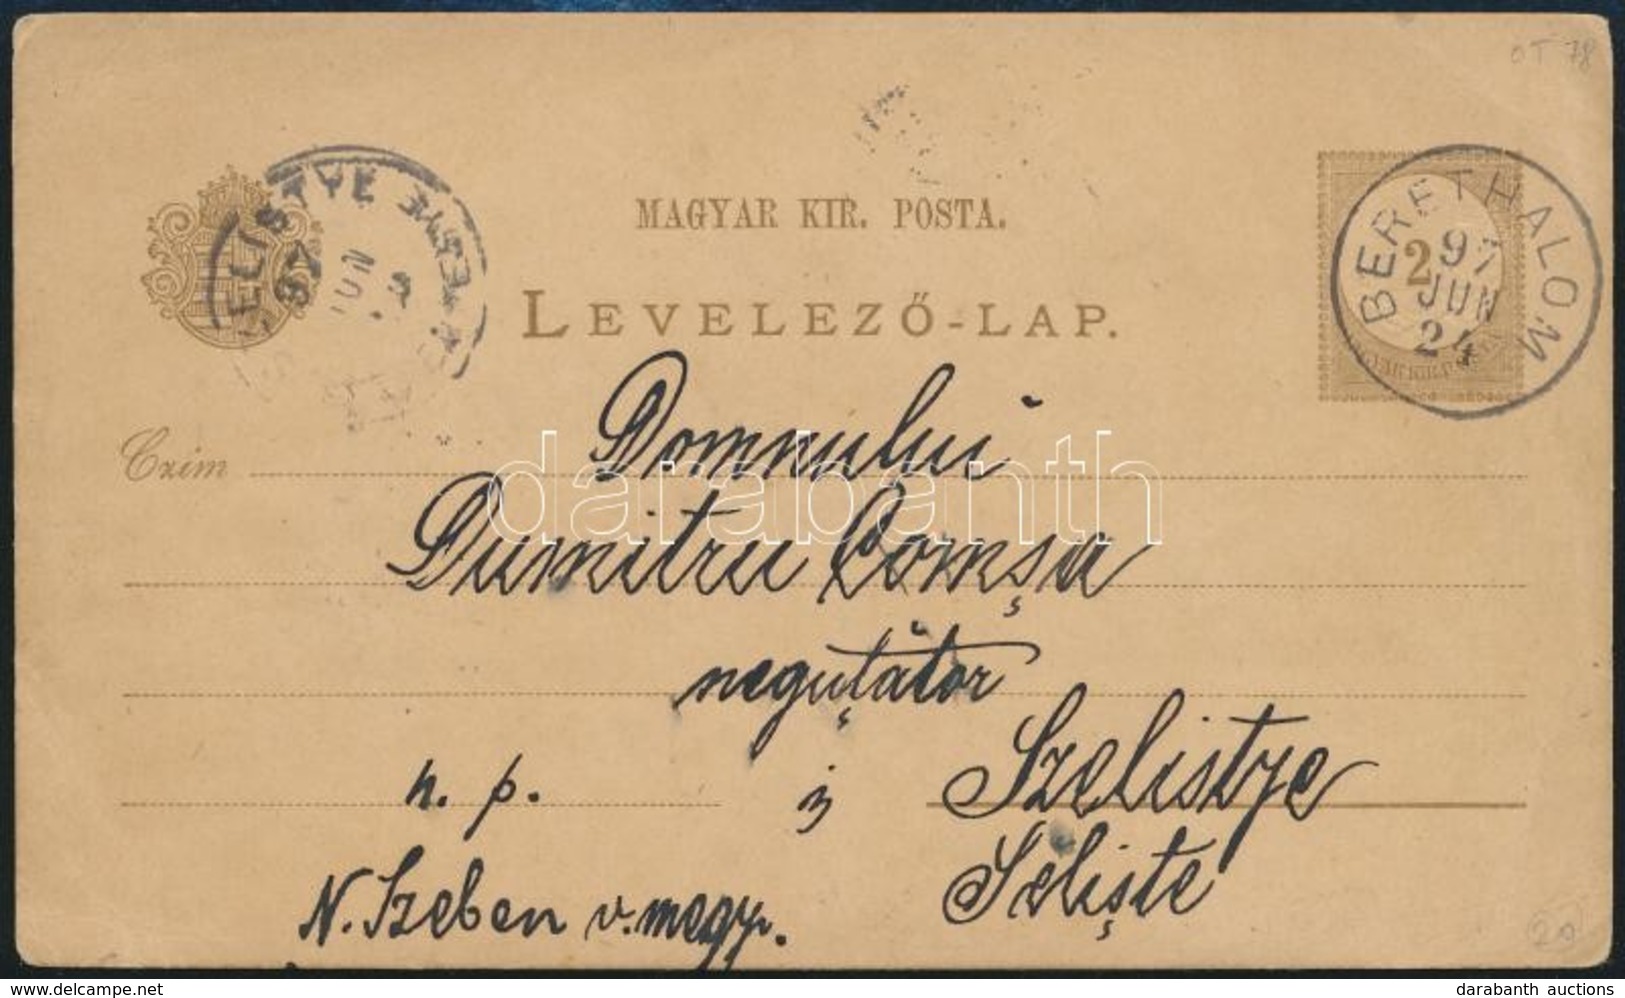 OT 78
MAGYAR KIR. POSTA.
LEVELEZŐ-LAP.
BERETHALOM
2
97
JUN
24
97
JUN
Czím
Domnului
Dumitru Comșa
neguțător
n. p. în Szelistye
Seliște
N. Szeben v. megy.
20
darabanth
www.delcampe.net
darabanth auctions